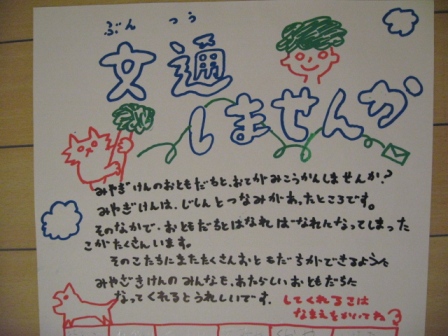 ぶん つう
文通
しませんか
みやぎけんのおともだちと、おてがみこうかんしませんか?
みやぎけんは、じしんとつなみがあったところです。
そのなかで、おともだちとはなればなれになってしまった
こがたくさんいます。
そのこたちにまたたくさんおともだちができるように
みやざきけんのみんなも、あたらしいおともだちに
なってくれるとうれしいです。してくれるこは
なまえをかいてね